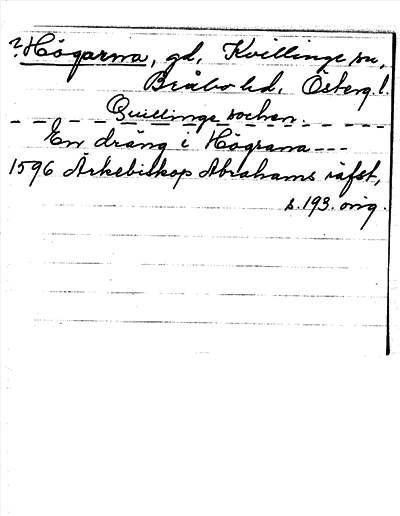 ?Högarna, gd, Kvillinge sn,
Bråbo hd. Österg. l.
Quillinge sochen.
En dräng i Högrana ---
1596 Ärkebiskop Abrahams räfst,
s. 193. orig.